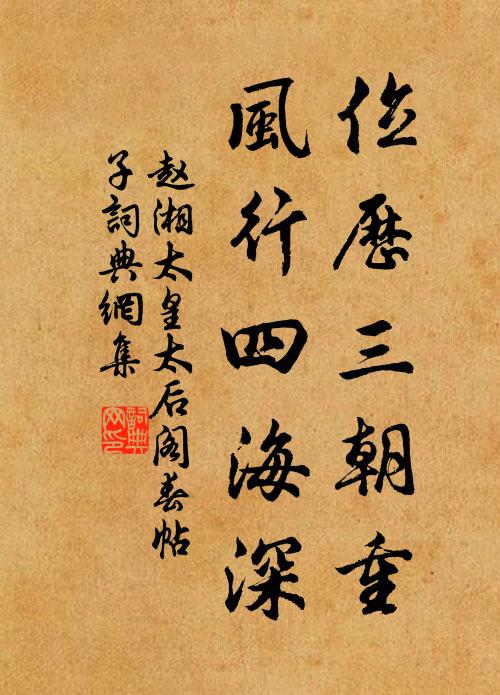 位歷三朝重
風行四海深
赵湘太皇太后阁春帖
子詞典網集
詞典
网印